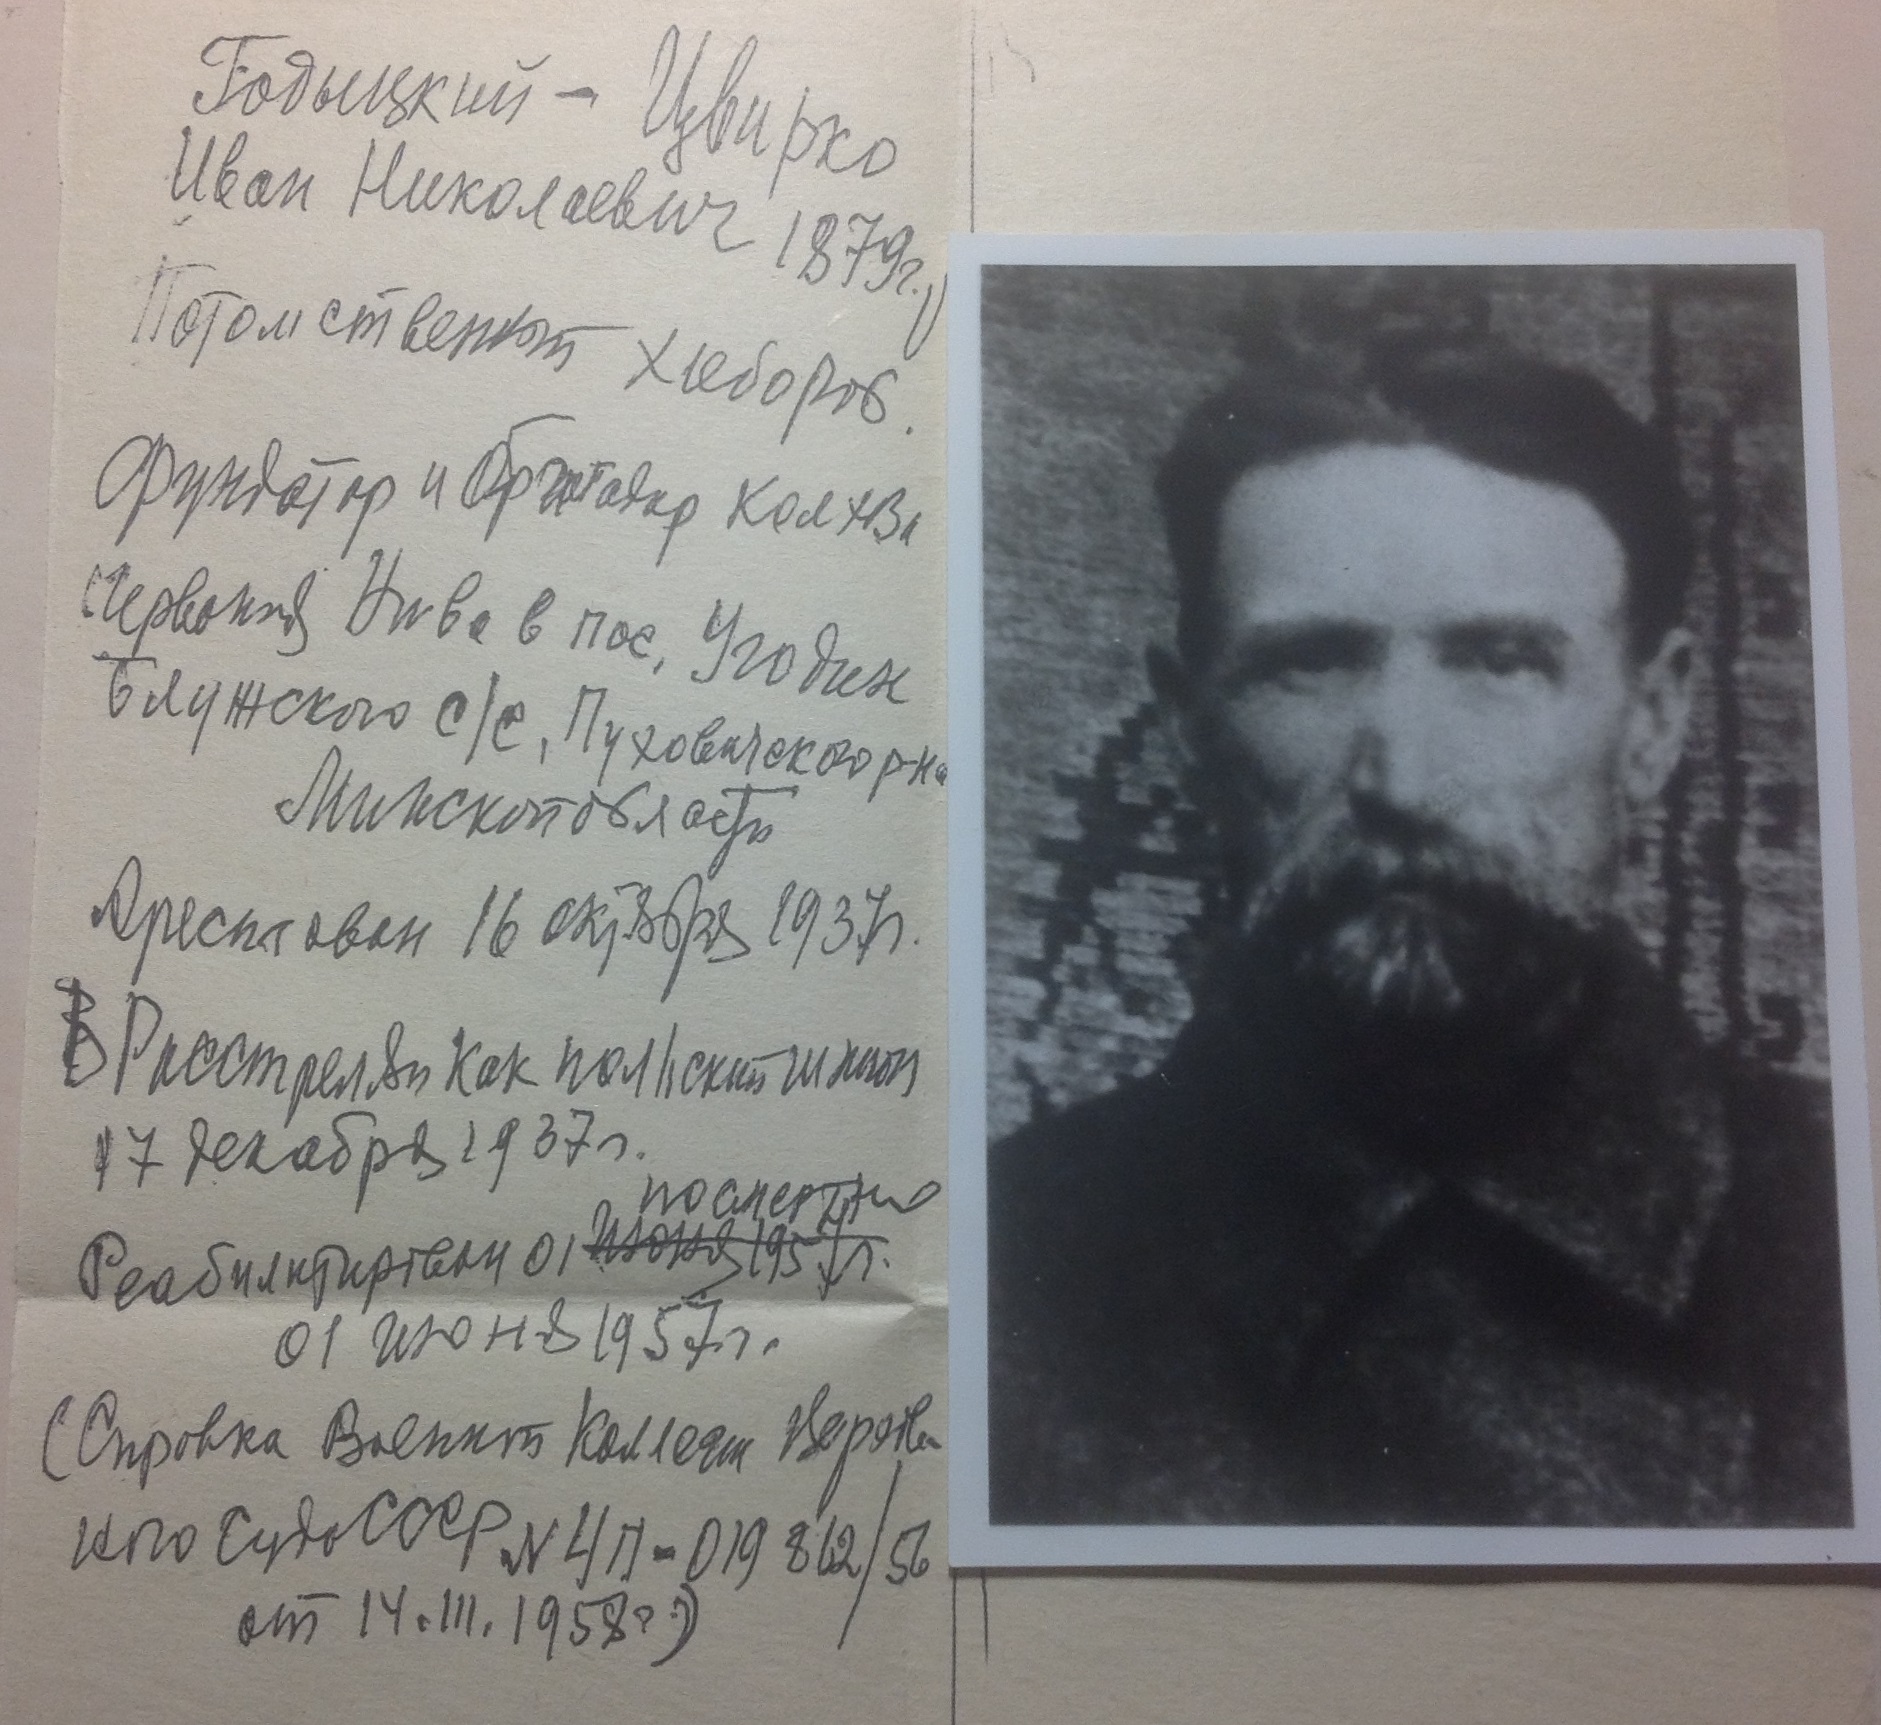 Годыцкий - Цвирко
Иван Николаевич 1879г.,
Потомственный хлебороб.
Фундатор и бригадир колхоза
Червоная Нива в пос. Угодин
Блужского с/с, Пуховичского р-на
Минской области
Арестован 16 октября 1937г.
Расстрелян как польский шпион
17 декабря 1937г.
посмертно
Реабилитирован 01 июня 1957г.
01 июня 1957г.
(Справка Военной Коллегии Верхов
ного Суда СССР N 4П-019862/56
от 14.III.1958г.)